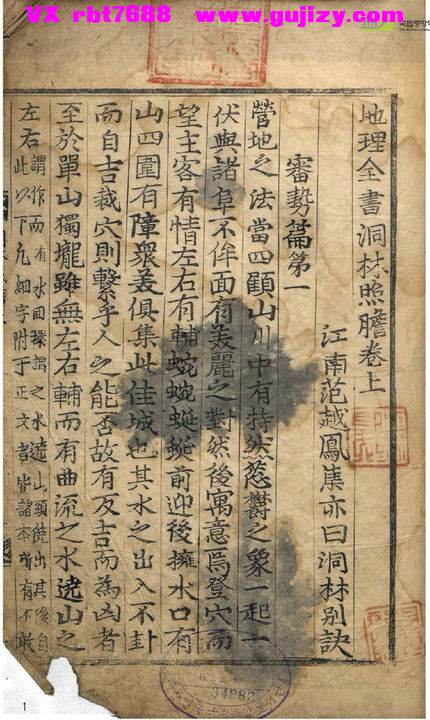 VX rbt7688 www.gujizy.com
地理全書洞林照膽卷上
江南范越鳳集亦曰洞林別訣
審勢篇第一
營地之法當四顧山川中有特然蔥鬱之象一起一
伏與諸阜不侔面有美麗之對然後寓意焉登穴而
望主客有情左右有輔蜿蜿蜒蜒前迎後擁水口有
山四圍有障衆美俱集此佳城也其水之出入不卦
而自吉裁穴則繫乎人之能否故有反吉而為凶者
至於單山獨壠雖無左右輔而有曲流之水遶山之
左右謂作而有水囬環謂之水遶山頭饒出其後自
此以下凡細字附于正文者皆諸本有不敢
34982
1